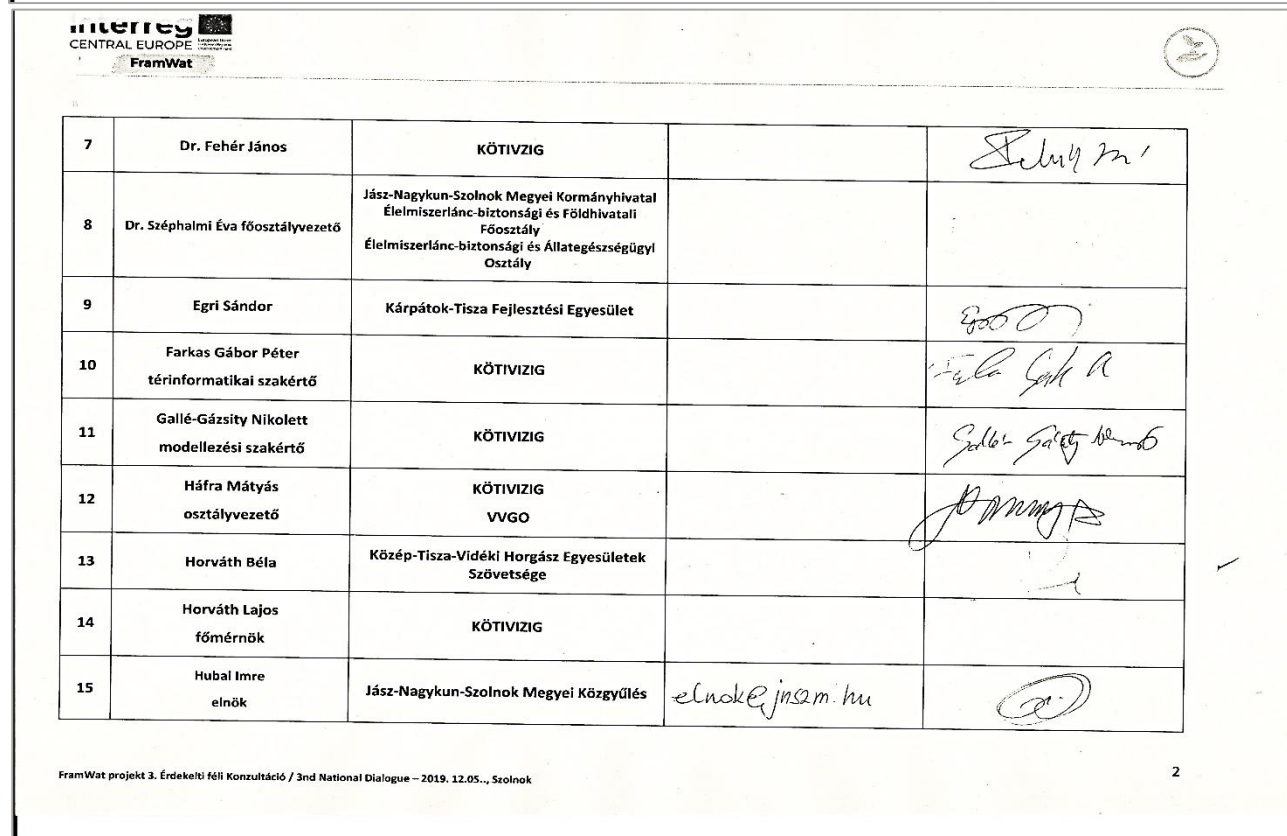 Interreg
CENTRAL EUROPE
FramWat
7 Dr. Fehér János KÖTIVZIG
8 Dr. Széphalmi Éva főosztályvezető
Jász-Nagykun-Szolnok Megyei Kormányhivatal
Élelmiszerlánc-biztonsági és Földhivatali
Főosztály
Élelmiszerlánc-biztonsági és Állategészségügyi
Osztály
9 Egri Sándor Kárpátok-Tisza Fejlesztési Egyesület
10 Farkas Gábor Péter
térinformatikai szakértő
KÖTIVIZIG
11 Gallé-Gázsity Nikolett
modellezési szakértő
KÖTIVIZIG
12 Háfra Mátyás
osztályvezető
KÖTIVIZIG
VVGO
13 Horváth Béla
Közép-Tisza-Vidéki Horgász Egyesületek
Szövetsége
14 Horváth Lajos
főmérnök
KÖTIVIZIG
15 Hubai Imre
elnök
Jász-Nagykun-Szolnok Megyei Közgyűlés
elnok@jnszm.hu
FramWat projekt 3. Érdekelti féli Konzultáció / 3nd National Dialogue – 2019. 12.05.., Szolnok
2